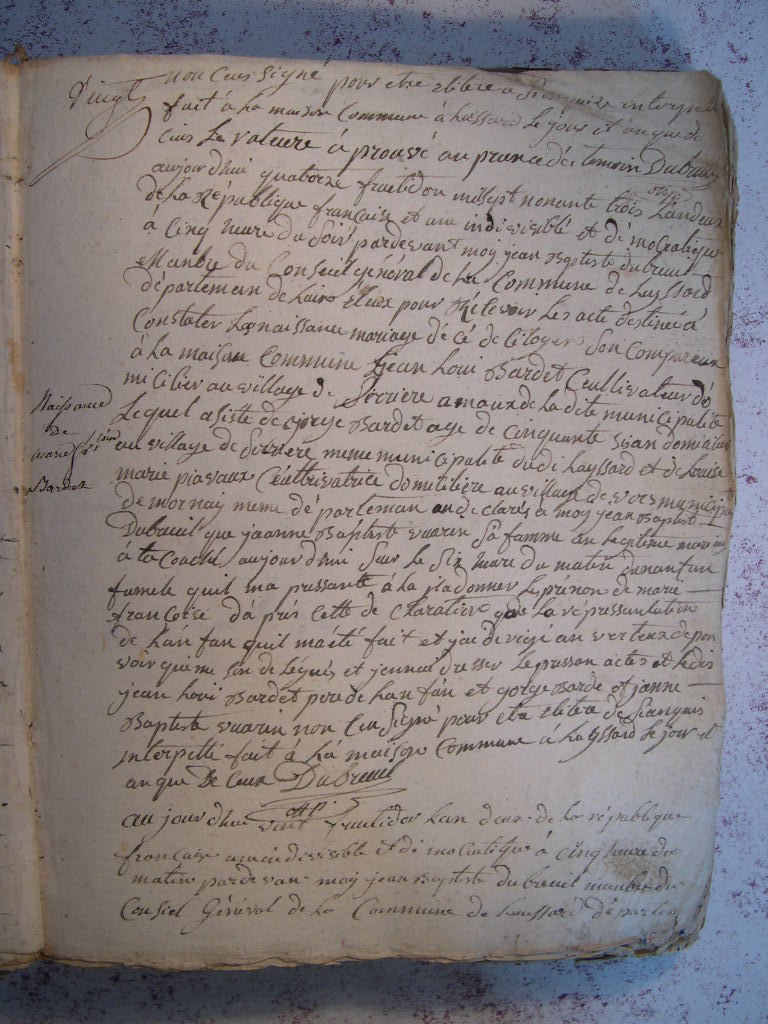 Vingt
non ceus signé pour etre elitere a se enquis interpelle
fait à la maison Commune à hässard le jour et an que de
sus Le rature à prouvé an prance dei temoin Dubreuil
aujourd'hui quatorze fruetidor milsept nonante trois Landeux
de la République française et une indivisiblé et démocratique
à Cinq hure du Soir pardevant moy jean Baptiste dubreuil
Manbre du Conseil général de la Commune de hayssard
département de lain éleux pour Recevoir les acte destinéà
Constater la naissance mariage décé de Citoyens Son Compareux
à la maison Commune jean loui Bardet Ceultivateur do
micilier au village de Serriere amaux de la dite municipalité
Naissance
de
marie fransoise
Bardet
Lequel assisté de gorge Bardet age de cinquante sixan domicilier
au village de Serriere meme municipalité dudi hayssard et de Louise
marie piavaux Ceultivatrice domiciliére au village de vers municipa
de mornay meme département on declarés a moy jean Baptiste
Dubreuil que jeanne Baptiste vuarin Sa famme en legitime mariage
à la Couché aujourd'hui Sur le Six hure du matin dunanfan
famele quil ma pressanté à la pladonner le prénon de marie
françoise d'à près cette de Claration que la représsantation
de lanfan quil ma été fait et jai dérigé an vertu de pou
voir qui me son délégués et jennai dresser le presson actes et ledis
jean loui Bardet pere de lanfan et gorge Barde et janne
Baptiste vuarin non Ceu Signé pour etre elitere de Seanquis
interpellé fait à la maison Commune à hayssard le jour et
an que De Ceux Dubreuil
aujourdhui vint fruetidor lan deux de la république
française une indivisible et dimocratique à cinq hure du
matin pardevan moy jean Baptiste dubreuil manbre du
Consiel Général de la Commune de haussard départem